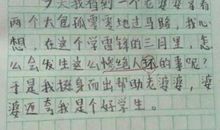 今天我看到一个老婆婆拿着
两个大包孤零零地过马路，我心
想，在这个学雷锋的三月里，怎
么会发生这么惨绝人寰的事呢？
于是我挺身而出帮助老婆婆，婆
婆还夸我是个好学生。